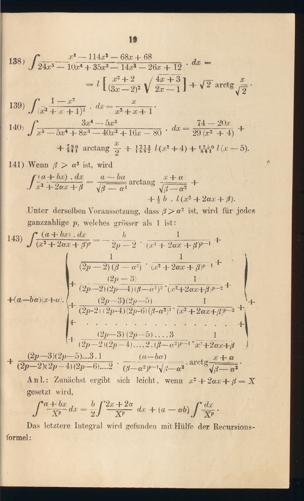 19
138) ∫ (x³ − 114x² − 68x + 68) / (24x⁵ − 10x⁴ + 35x³ − 14x² − 26x + 12) . dx =
= l [ (x² + 2) / (3x − 2)² √((4x + 3) / (2x − 1)) ] + √2 arctg x / √2 .
139) ∫ (1 − x²) / (x² + x + 1)² . dx = x / (x² + x + 1) .
140) ∫ (3x⁴ − 5x²) / (x⁵ − 5x⁴ + 8x³ − 40x² + 16x − 80) . dx = (74 − 20x) / 29(x² + 4) +
arctang x/2 + l(x² + 4) + l(x − 5).
141) Wenn β > α² ist, wird
∫ (a + bx) . dx / (x² + 2αx + β) = (a − bα) / √(β − α²) arctang (x + α) / √(β − α²) +
+ ½ b . l(x² + 2αx + β).
Unter derselben Voraussetzung, dass β > α² ist, wird für jedes
ganzzahlige p, welches grösser als 1 ist:
143) ∫ (a + bx) . dx / (x² + 2αx + β)ᵖ = − b / (2p − 2) . 1 / (x² + 2αx + β)ᵖ⁻¹ +
1 / (2p − 2)(β − α²) . 1 / (x² + 2αx + β)ᵖ⁻¹ +
(2p − 3) / (2p − 2)(2p − 4)(β − α²)² . 1 / (x² + 2αx + β)ᵖ⁻² +
+ (a − bα)(x + α) . (2p − 3)(2p − 5) / (2p − 2)(2p − 4)(2p − 6)(β − α²)³ . 1 / (x² + 2αx + β)ᵖ⁻³ +
. . . . . . . . . .
(2p − 3)(2p − 5) . . . 3 / (2p − 2)(2p − 4) . . . 2 . (β − α²)ᵖ⁻¹ . 1 / (x² + 2αx + β)
+ (2p − 3)(2p − 5) . . . 3 . 1 / (2p − 2)(2p − 4)(2p − 6) . . . 2 . (a − bα) / (β − α²)ᵖ⁻¹ √(β − α²) . arctg (x + α) / √(β − α²) .
Anl.: Zunächst ergibt sich leicht, wenn x² + 2αx + β = X
gesetzt wird,
∫ (a + bx) / Xᵖ dx = b/2 ∫ (2x + 2α) / Xᵖ dx + (a − αb) ∫ dx / Xᵖ .
Das letztere Integral wird gefunden mit Hülfe der Recursions-
formel: